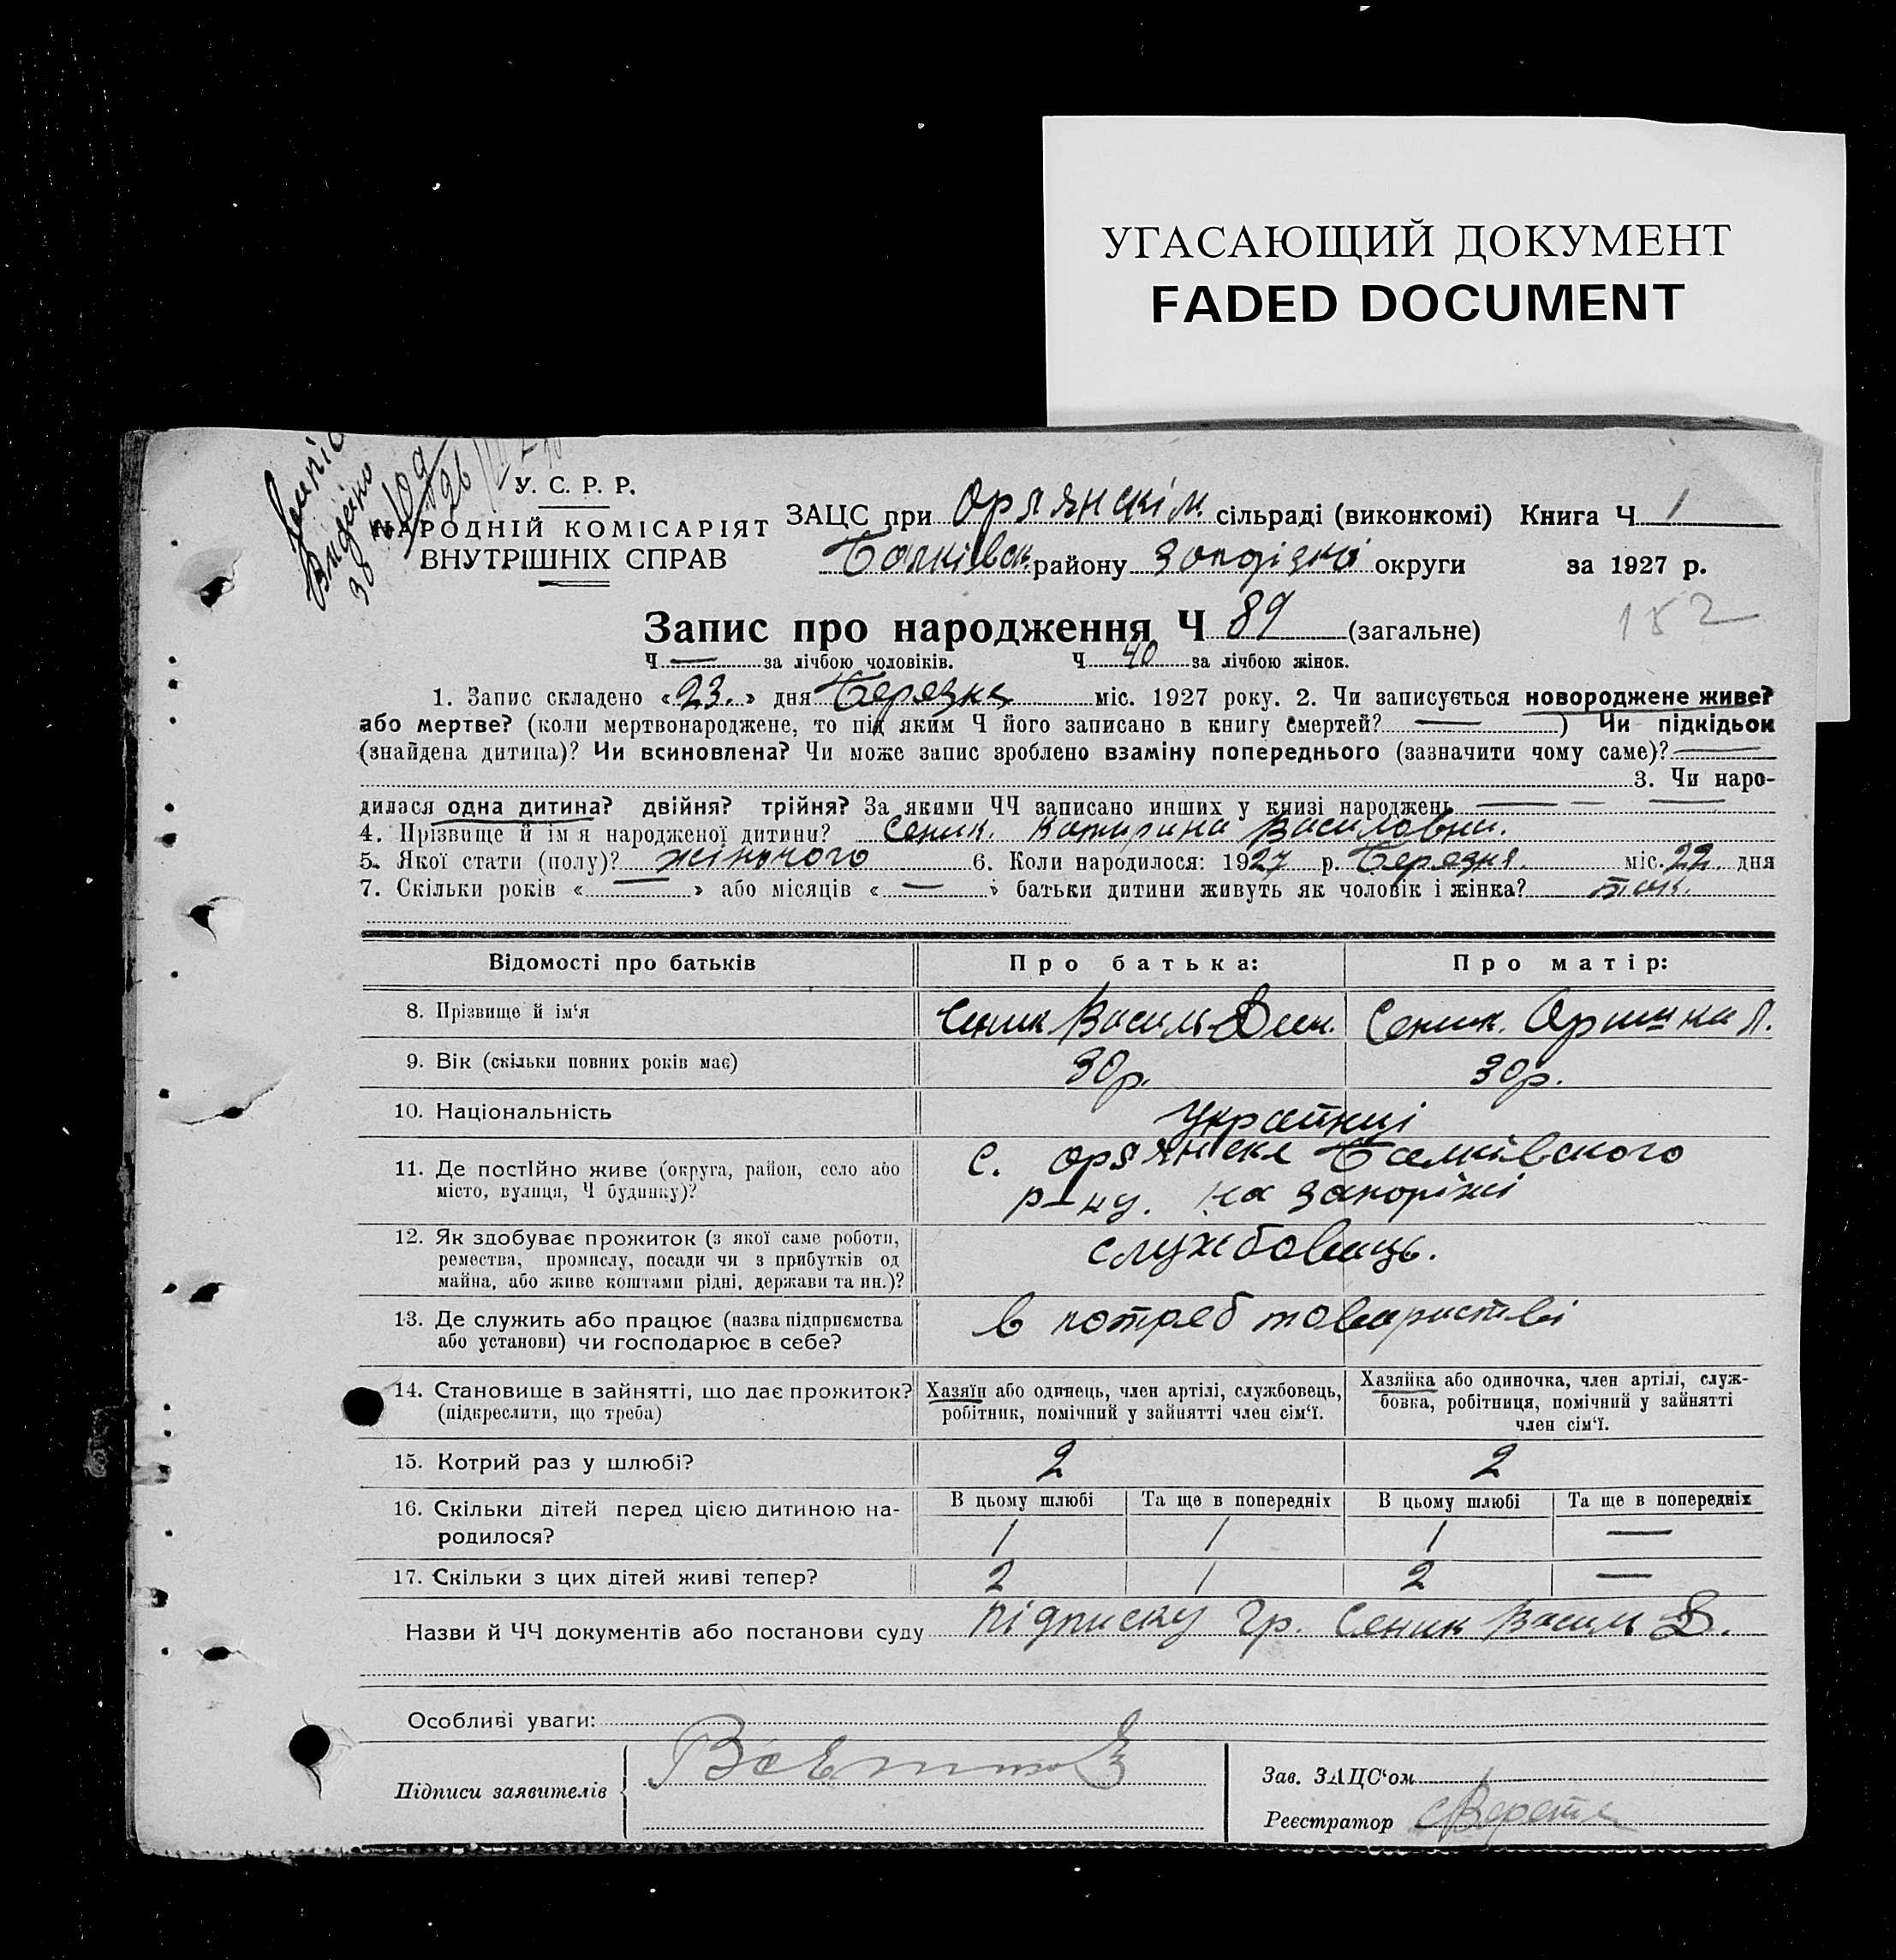 УГАСАЮЩИЙ ДОКУМЕНТ
FADED DOCUMENT
У. С. Р. Р.
НАРОДНІЙ КОМІСАРІЯТ
ВНУТРІШНІХ СПРАВ
ЗАЦС при Оряянскім сільраді (виконкомі) Книга Ч 1
Балківськ району Запоріжкої округи за 1927 р.
152
Запис про народження Ч 89 (загальне)
Ч — за лічбою чоловіків. Ч 40 за лічбою жінок.
1. Запис складено «23.» дня Березня міс. 1927 року. 2. Чи записується новороджене живе?
або мертве? (коли мертвонароджене, то під яким Ч його записано в книгу смертей? — ) Чи підкідьок
(знайдена дитина)? Чи всиновлена? Чи може запис зроблено взаміну попереднього (зазначити чому саме)? —
3. Чи наро-
дилася одна дитина? двійня? трійня? За якими ЧЧ записано инших у книзі народжень — — —
4. Прізвище й ім'я народженої дитини? Сеник. Катирина Василовна.
5. Якої стати (полу)? жіночого 6. Коли народилося: 1927 р. Березня. міс. 22 дня
7. Скільки років « — » або місяців « — » батьки дитини живуть як чоловік і жінка? так.
Відомості про батьків Про батька: Про матір:
8. Прізвище й ім'я Сеник Василь Дем. Сеник. Оришна Л.
9. Вік (скільки повних років має) 30р. 30р.
10. Національність Українці
11. Де постійно живе (округа, район, село або
місто, вулиця, Ч будинку)?
с. Оряянске Балківського
р-ну. на Запоріжі
12. Як здобуває прожиток (з якої саме роботи,
ремества, промислу, посади чи з прибутків од
майна, або живе коштами рідні, держави та ин.)?
службовець.
13. Де служить або працює (назва підприємства
або установи) чи господарює в себе?
в потреб товаристві
14. Становище в зайнятті, що дає прожиток?
(підкреслити, що треба)
Хазяїн або одинець, член артілі, службовець,
робітник, помічний у зайнятті член сім'ї.
Хазяйка або одиночка, член артілі, служ-
бовка, робітниця, помічний у зайнятті
член сім'ї.
15. Котрий раз у шлюбі? 2 2
16. Скільки дітей перед цією дитиною на-
родилося?
В цьому шлюбі Та ще в попередніх В цьому шлюбі Та ще в попередніх
1 1 1 —
17. Скільки з цих дітей живі тепер? 2 1 2 —
Назви й ЧЧ документів або постанови суду підписку гр. Сеник Василь Д.
Особливі уваги:
Підписи заявителів
Зав. ЗАЦС'ом
Реєстратор